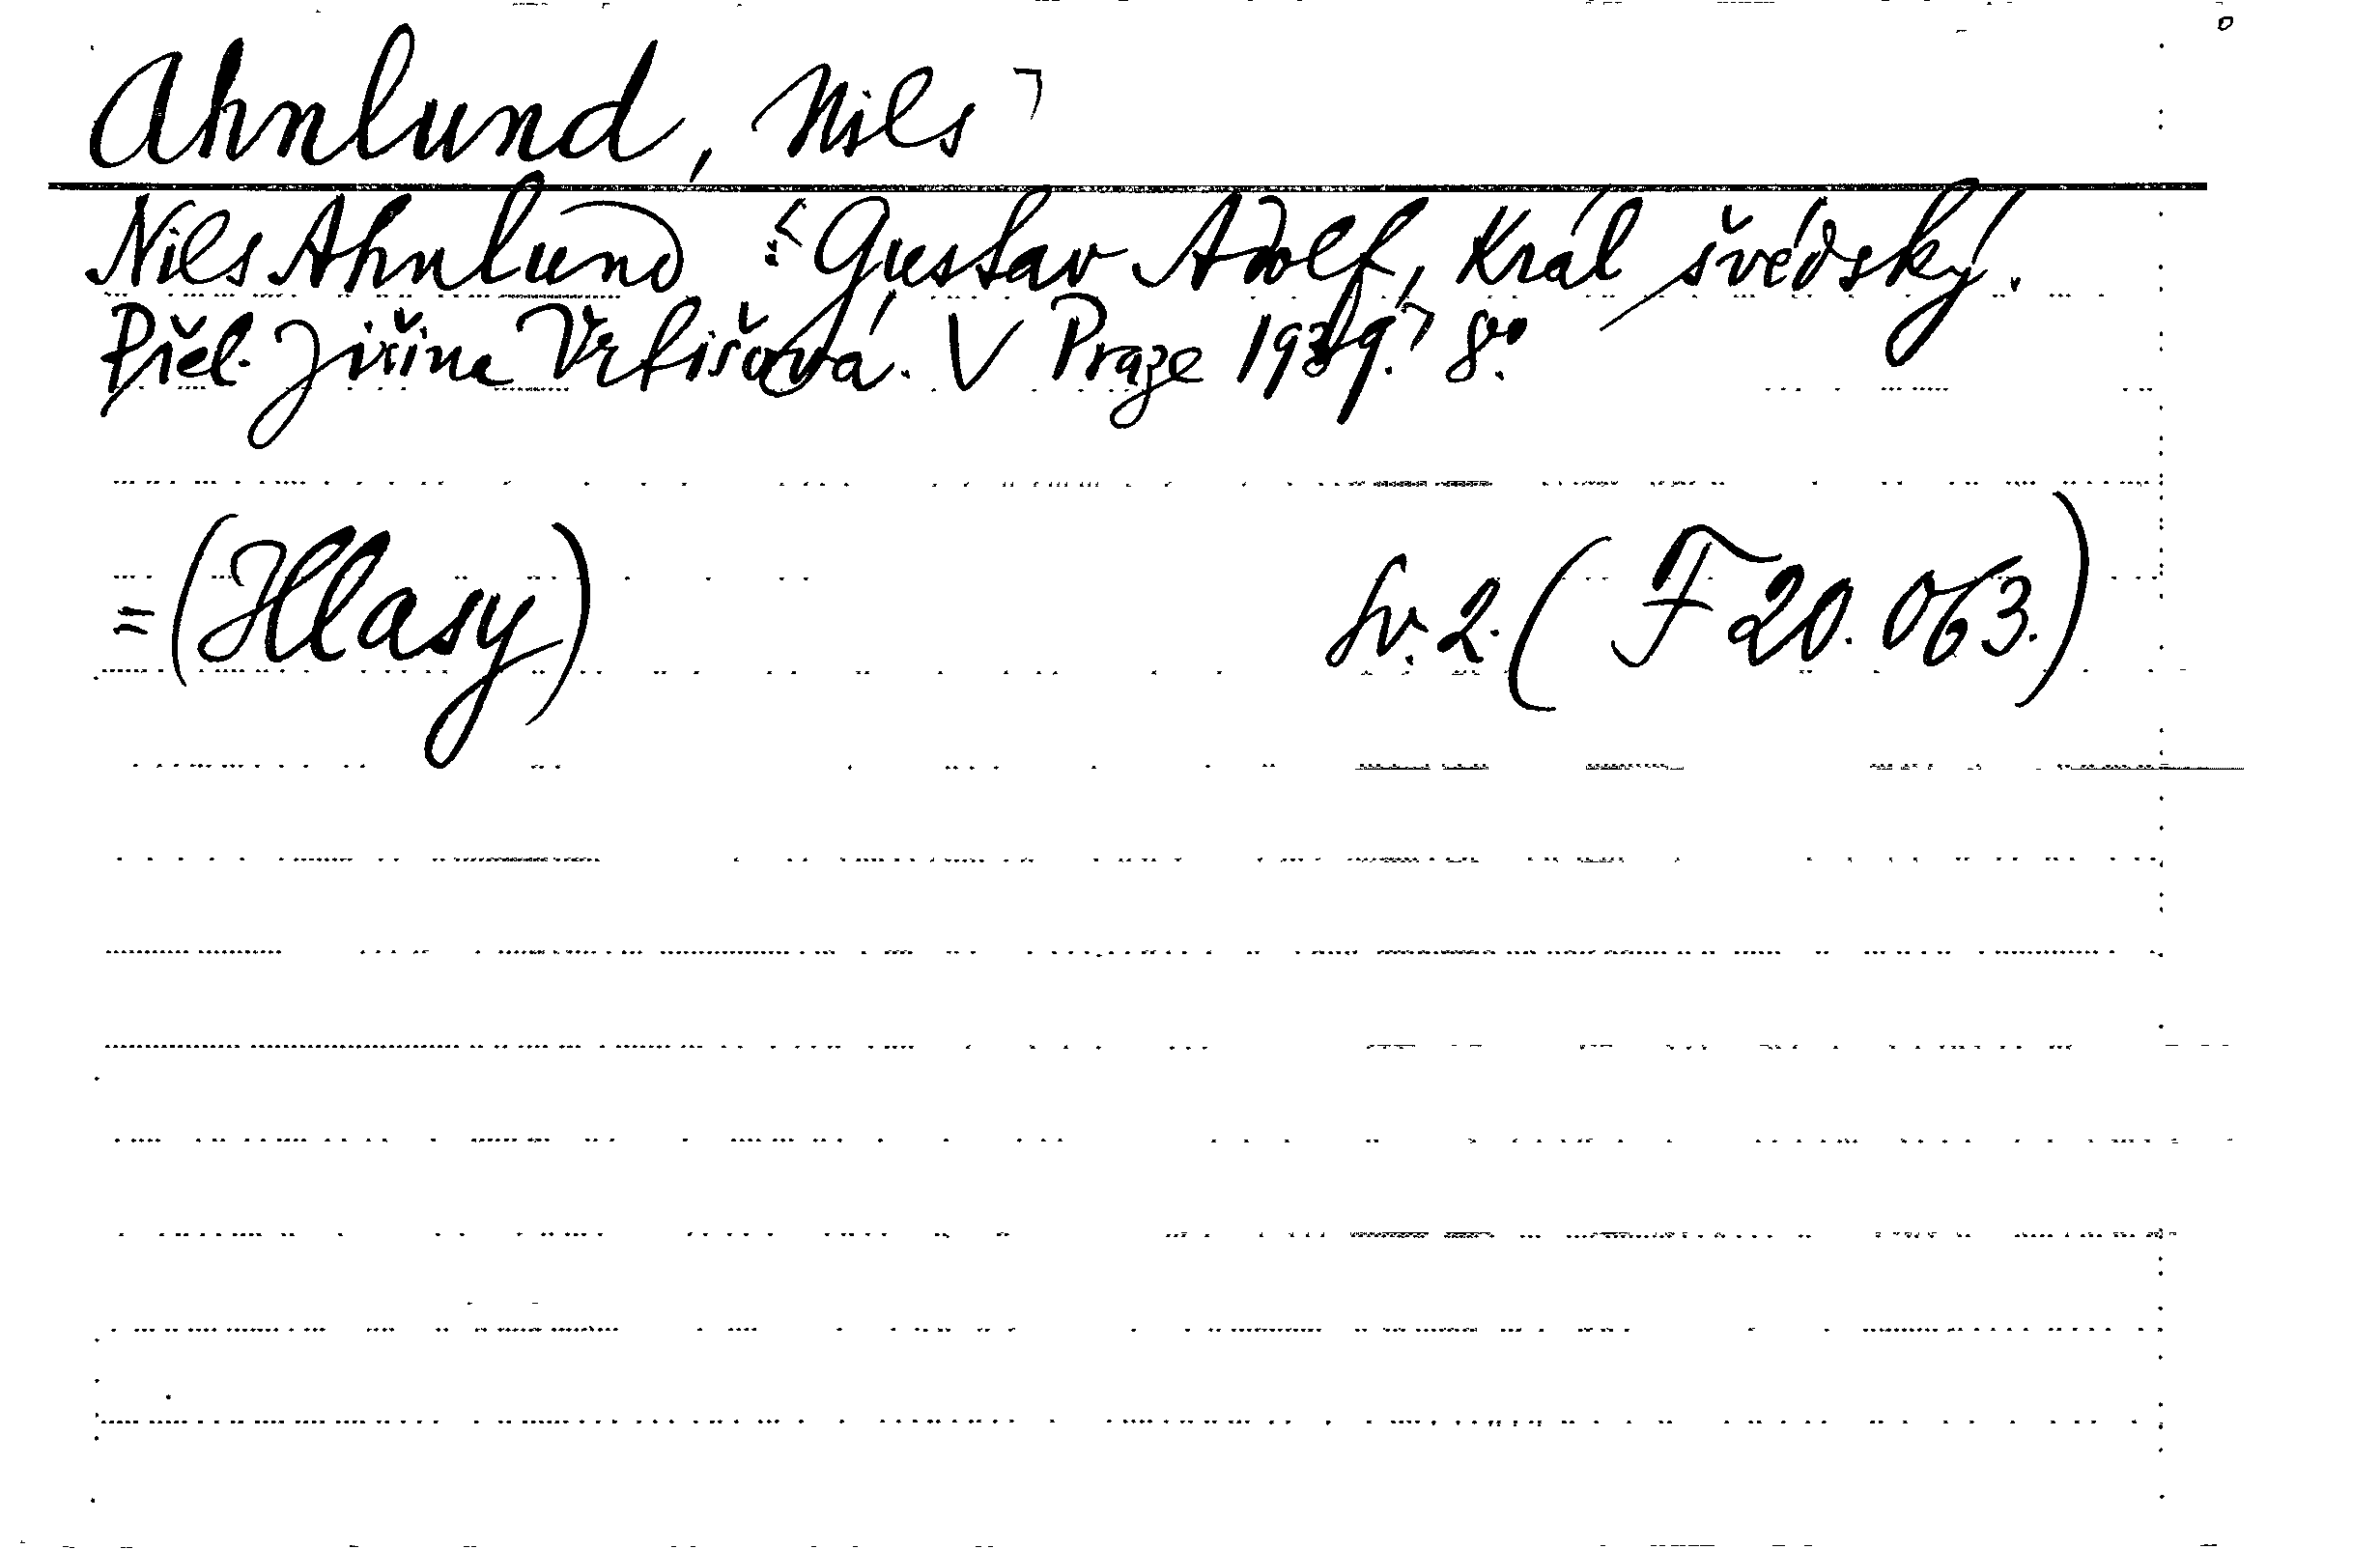 Ahnlund, Nils
Nils Ahnlund : Gustav Adolf, Král švédský.
Přel. Jiřina Vrtišová. V Praze 1939. 8°.
= (Hlasy) Sv. 2. (F 20.063.)